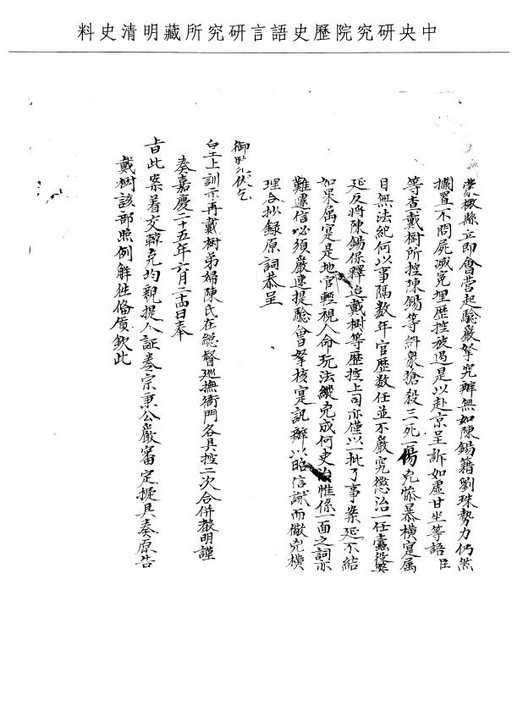 中央研究院歷史語言研究所藏明清史料
蒙檄縣立即會營起驗嚴拏究辦無如陳錫藉劉珠勢力仍然
擱置不問屍滅冤埋歷控被遏是以赴京呈訴如虛甘坐等語臣
等查戴樹所控陳錫等糾衆搶殺三死一傷兇慘暴橫寔屬
目無法紀何以事隔數年官歷數任並不嚴究懲治一任蠹役
延反將陳錫保釋迨戴樹等歷控上司亦僅以一批了事案延不結
如果屬寔是地官輕視人命玩法縱兇成何吏治惟係一面之詞亦
難遽信必須嚴速提驗會拏核寔訊辦以昭信讞而儆兇橫
理合抄錄原詞恭呈
御覽伏乞
皇上訓示再戴樹弟婦陳氏在總督巡撫衙門各具控二次合併聲明謹
奏嘉慶二十五年六月二十四日奉
旨此案着交韓克均親提人証卷宗秉公嚴審定擬具奏原告
戴樹該部照例解往備質欽此